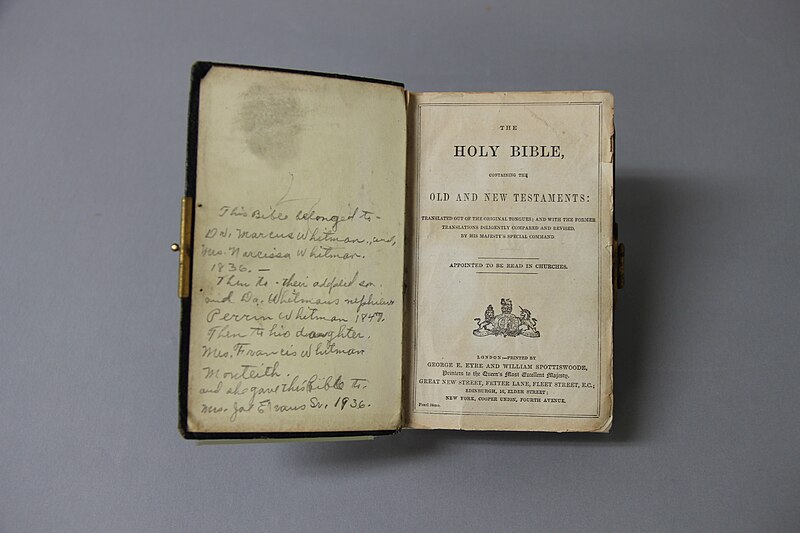 This Bible belonged to -
Dr. Marcus Whitman., and,
Mrs. Narcissa Whitman.
1836. —
Then to - their adopted son.
and Dr. Whitmans nephew
Perrin Whitman 1847.
Then to his daughter.
Mrs. Francis Whitman
Monteith.
and she gave this Bible to.
Mrs. Joe Evans Sr. 1936.
THE
HOLY BIBLE,
CONTAINING THE
OLD AND NEW TESTAMENTS:
TRANSLATED OUT OF THE ORIGINAL TONGUES; AND WITH THE FORMER
TRANSLATIONS DILIGENTLY COMPARED AND REVISED,
BY HIS MAJESTY'S SPECIAL COMMAND.
APPOINTED TO BE READ IN CHURCHES.
LONDON:—PRINTED BY
GEORGE E. EYRE AND WILLIAM SPOTTISWOODE,
Printers to the Queen's Most Excellent Majesty.
GREAT NEW STREET, FETTER LANE, FLEET STREET, E.C.;
EDINBURGH, 16, ELDER STREET;
NEW YORK, COOPER UNION, FOURTH AVENUE.
Pearl